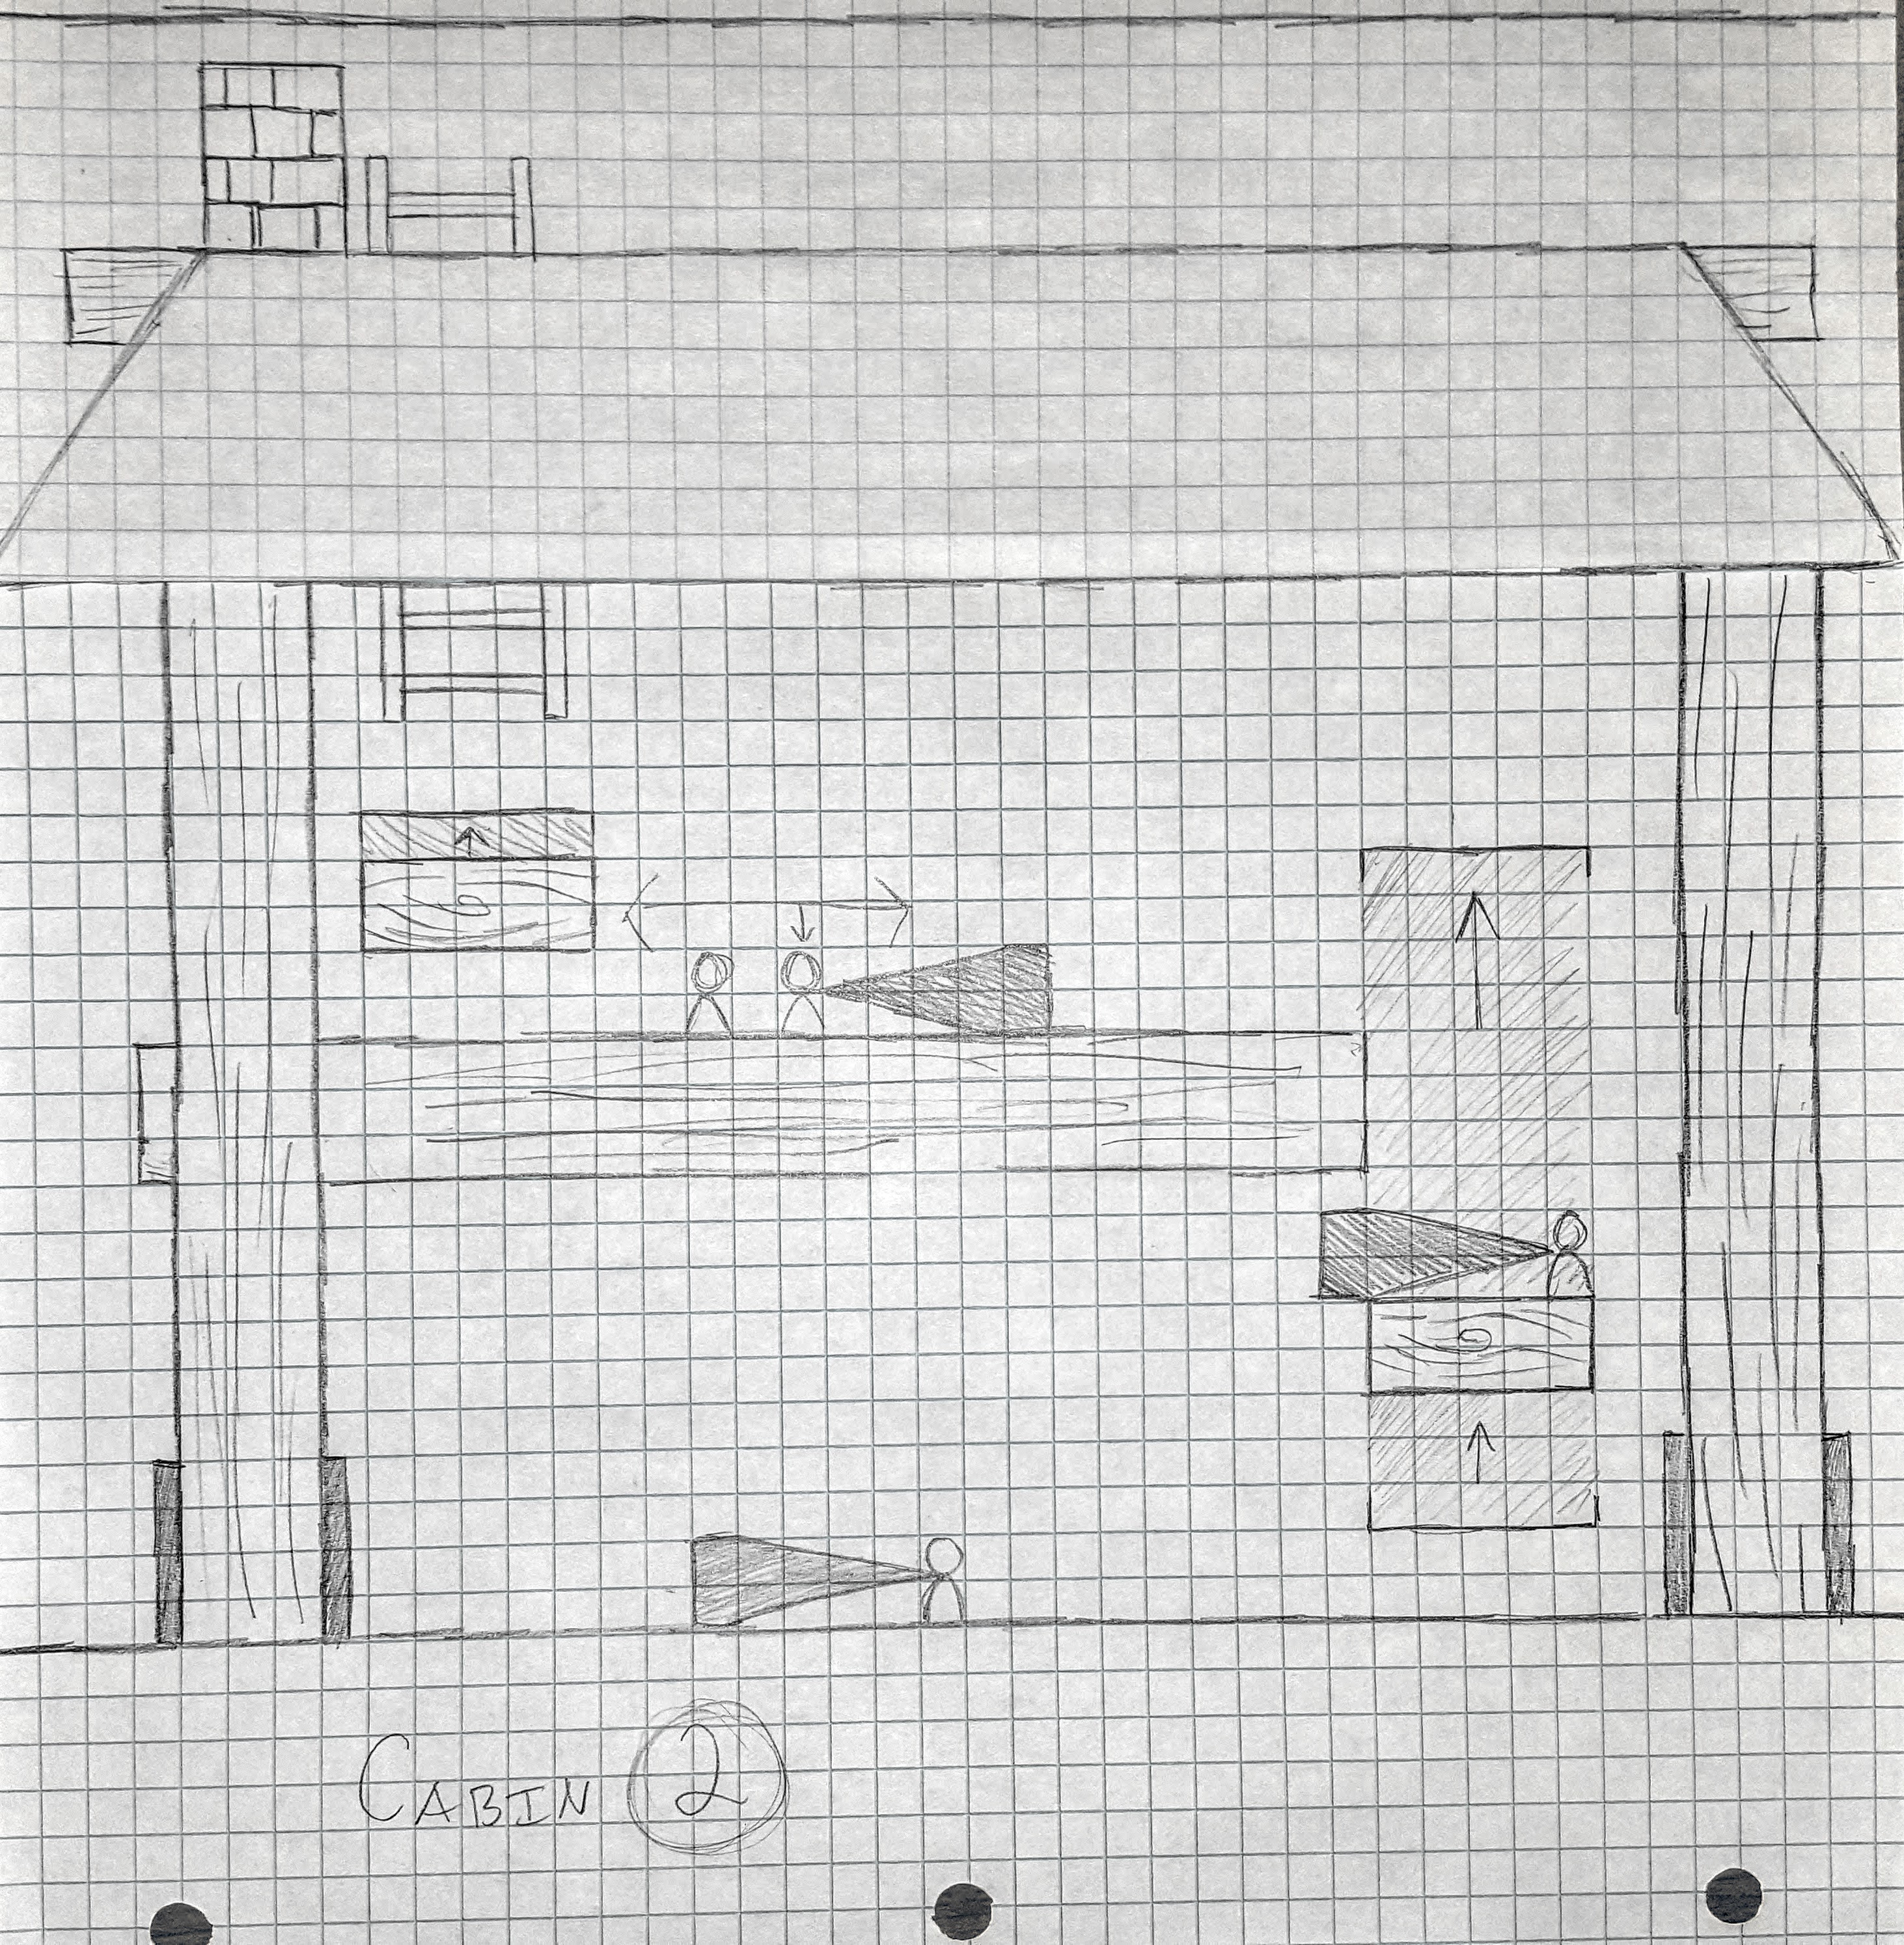 CABIN 2